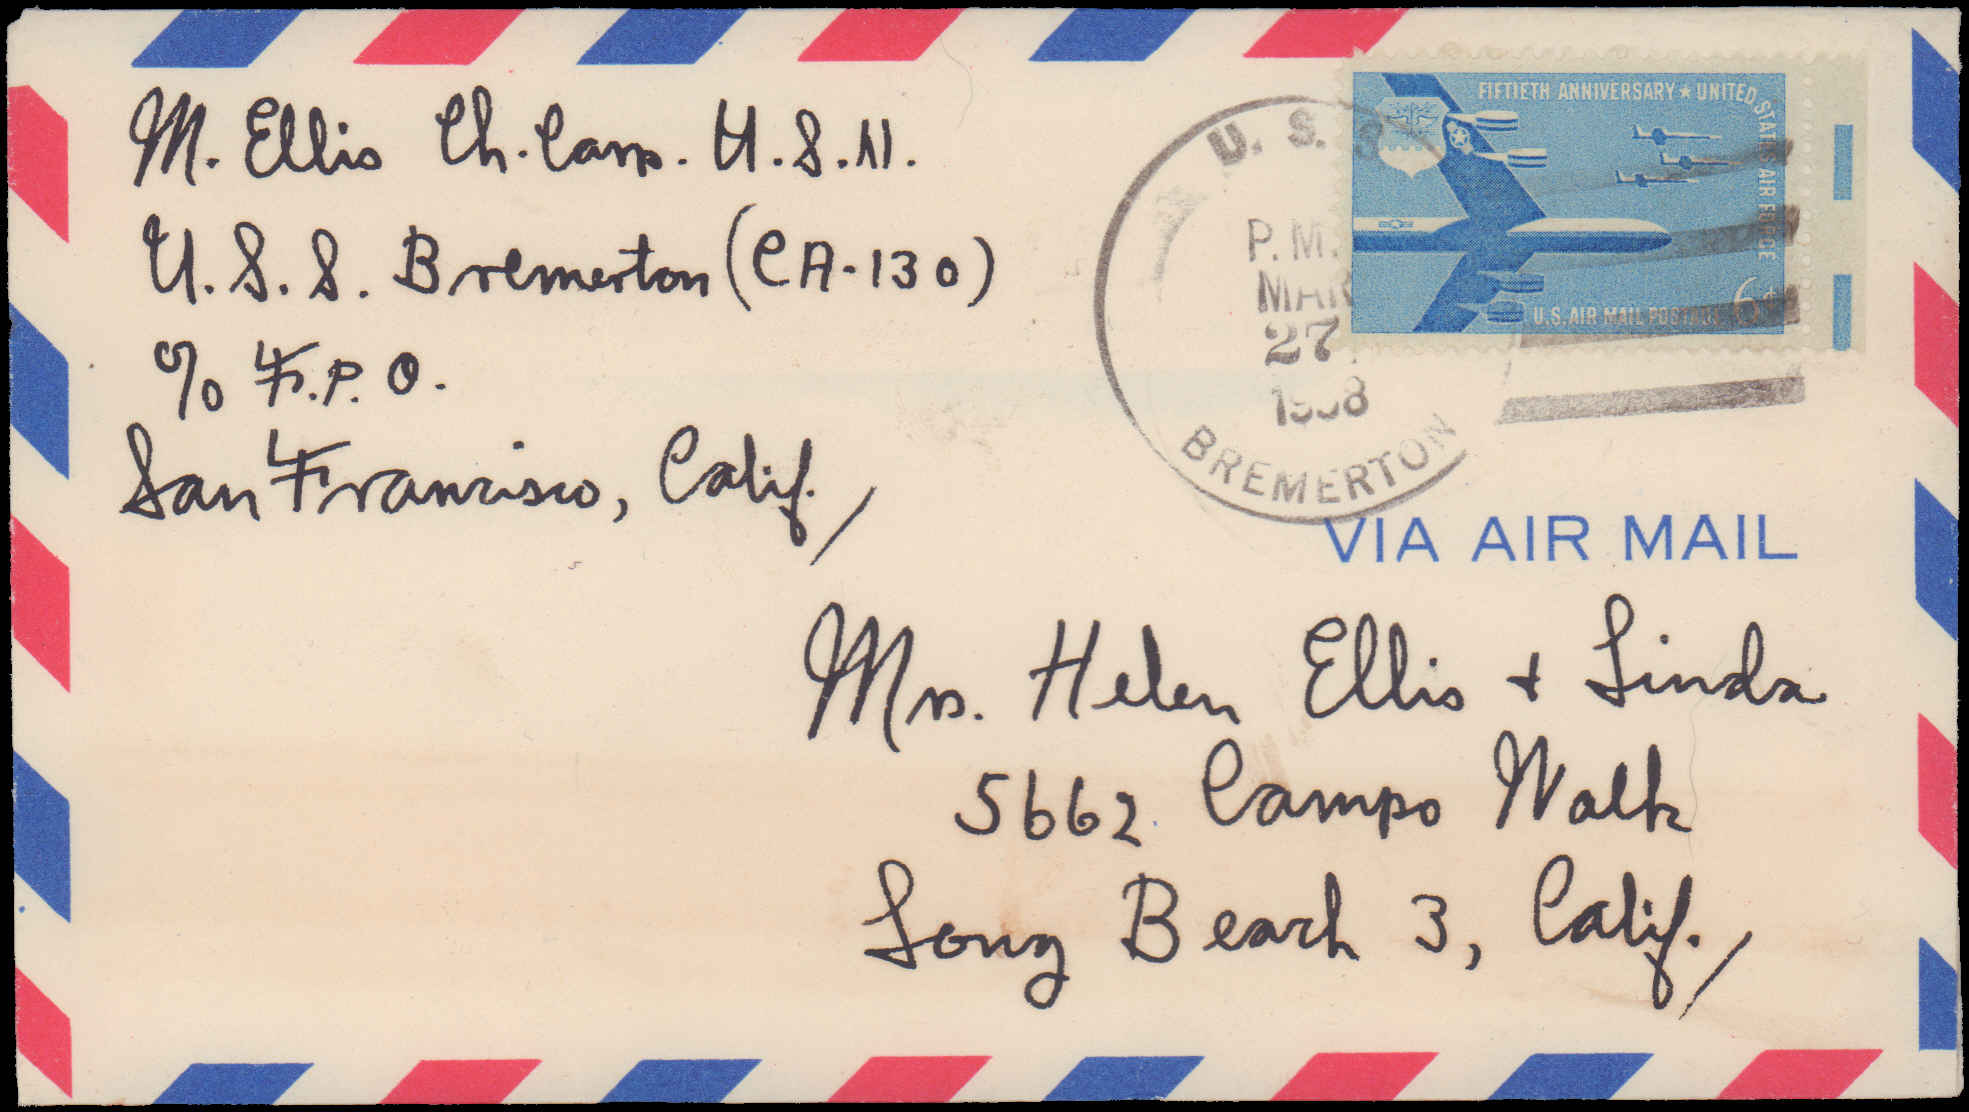 M. Ellis Ch. Carp. U.S.N.
U.S.S. Bremerton (CA-130)
c/o F.P.O.
San Francisco, Calif.
U. S. S.
P.M.
MAR
27
BREMERTON
FIFTIETH ANNIVERSARY ★ UNITED STATES AIR FORCE
U.S. AIR MAIL POSTAGE 6¢
VIA AIR MAIL
Mrs. Helen Ellis + Linda
5662 Campo Walk
Long Beach 3, Calif.